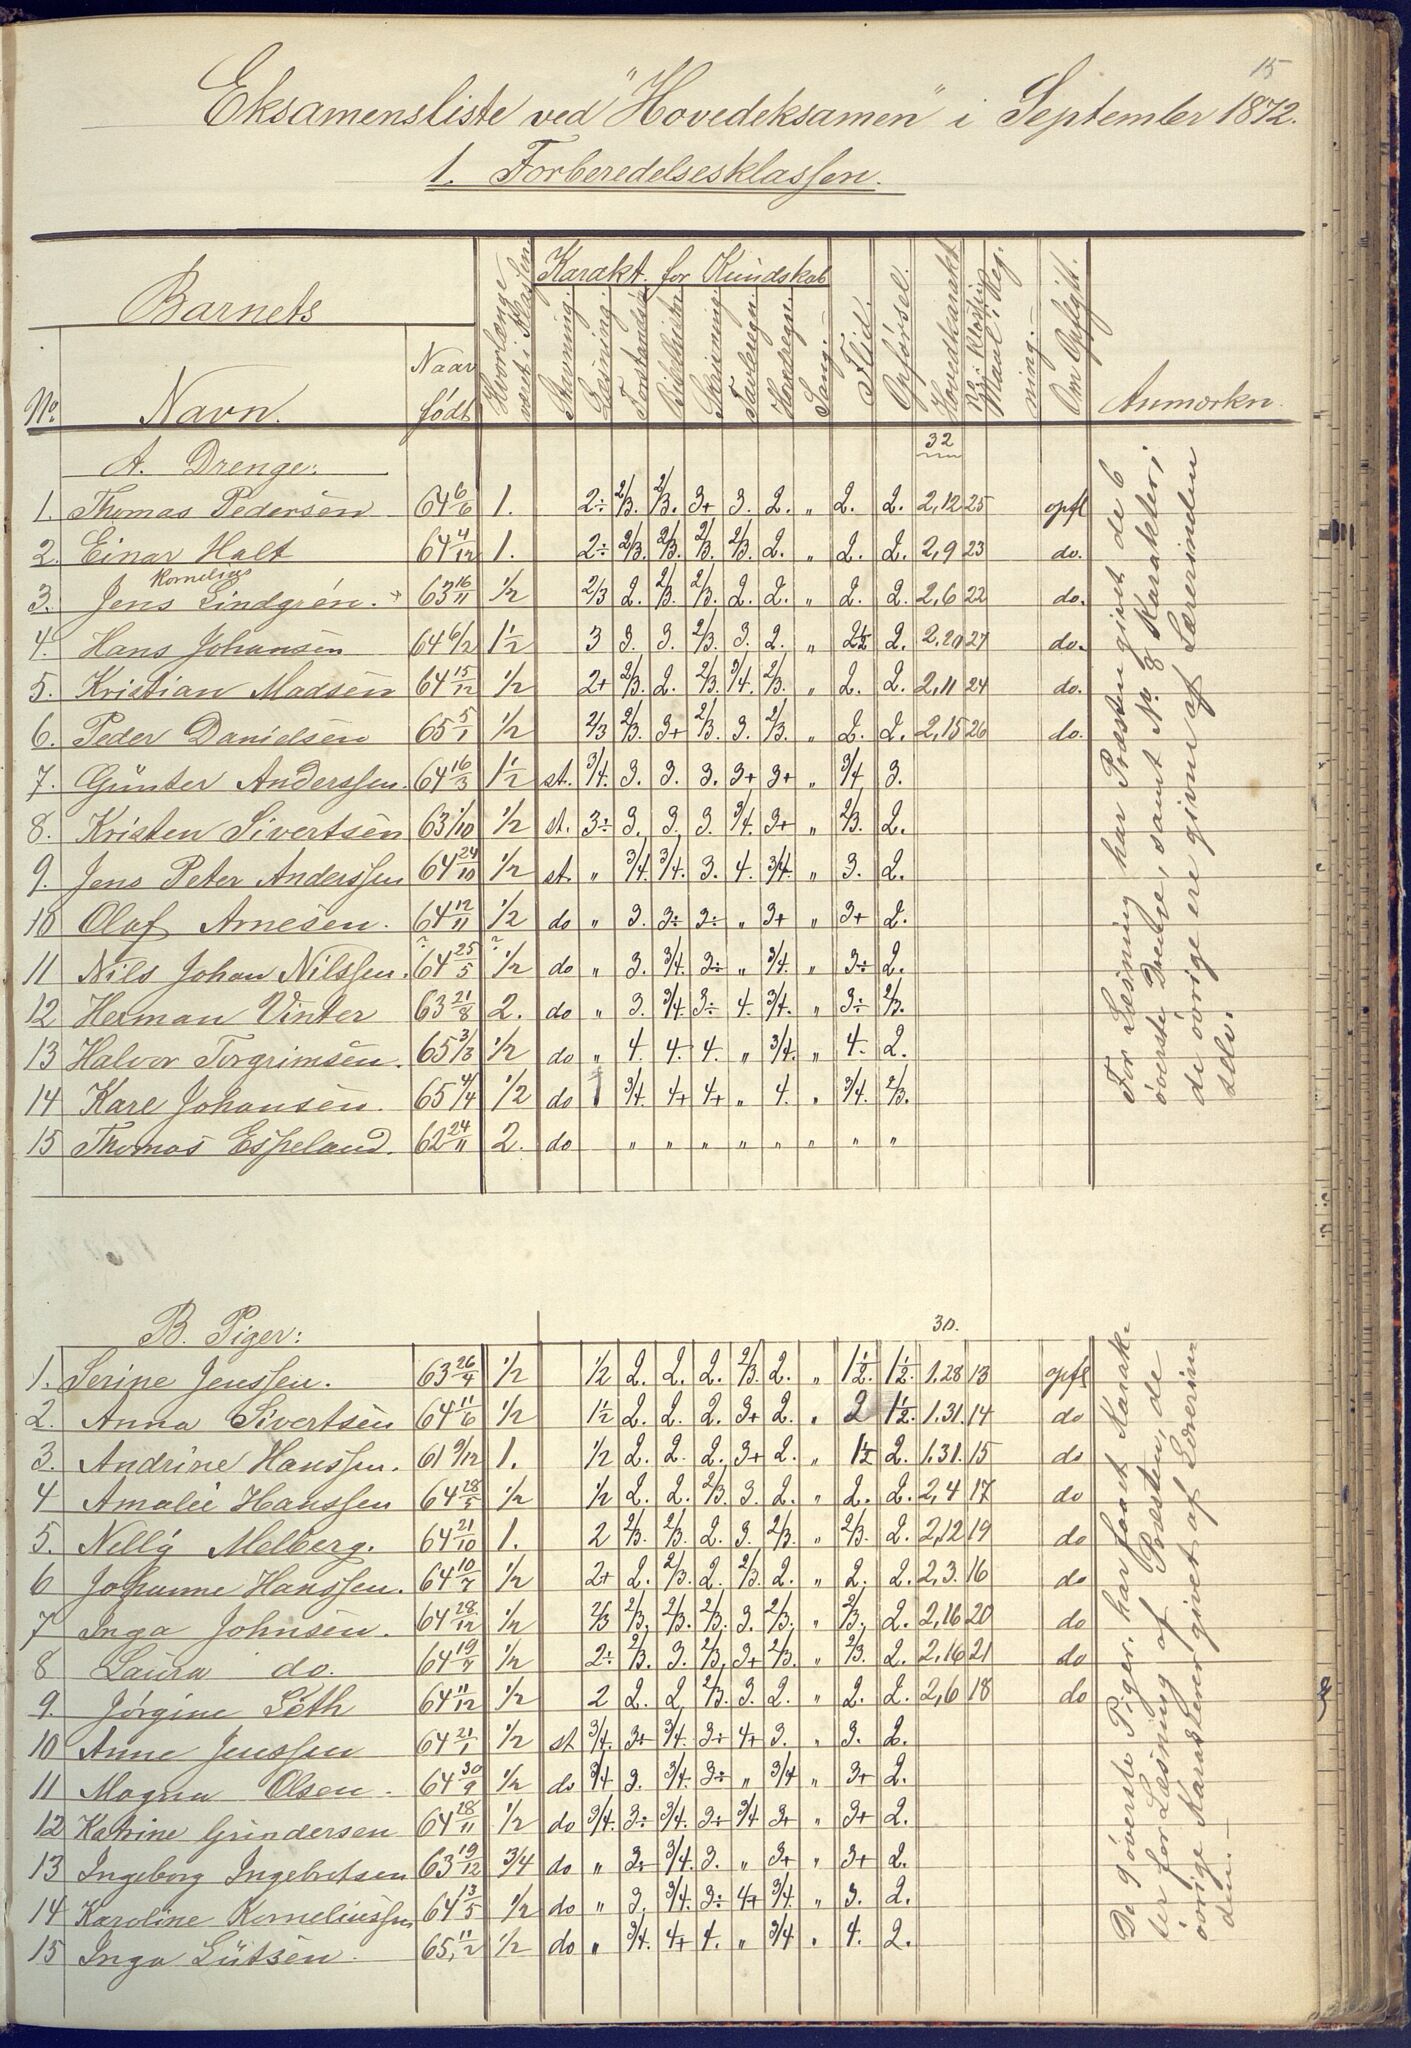 15
Eksamensliste ved "Hovedeksamen" i September 1872.
1. Forberedelsesklassen.
Barnets
No. Navn. Naar født Hvorlænge været i Klassen. Karakt. for Kundskab Stavning. Læsning. Forstandsøv. Bibelhistor. Skrivning. Tavleregn. Hovedregn. Sang. Flid. Opførsel. Hovedkarakt. Om Opflytt. Anmærkn.
32
A. Drenge:
1. Thomas Pedersen 64 6/6 1. 2÷ 2/3. 2/3. 3+ 3. 2. " 2. 2. 2,12 25 opfl
2. Einar Halt 64 4/12 1. 2÷ 2/3. 2/3. 2/3. 2/3. 2. " 2. 2. 2,9 23 do.
Kornelius
3. Jens Lindgrén. 63 16/11 1/2 2/3 2. 2/3. 2/3. 2. 2. " 2. 2. 2,6 22 do.
4. Hans Johansen 64 6/2 1 1/2 3 3. 3. 2/3. 3. 2. " 2 1/2 2. 2,20 27 do.
5. Kristian Madsen 64 15/12 1/2 2+ 2/3. 2. 2/3. 3/4. 2/3. " 2. 2. 2,11 24 do.
6. Peder Danielsen 65 5/1 1/2 2/3 2/3. 3+ 2/3. 3. 2/3. " 2. 2. 2,15 26 do.
7. Günter Anderssen. 64 16/3 1 1/2 st. 3/4. 3. 3. 3. 3+ 3+ " 3/4 3.
8. Kristen Sivertsen 63 1/10 1/2 st. 3÷ 3. 3. 3. 3/4. 3+ " 2/3. 2.
9. Jens Peter Anderssen 64 24/10 1/2 st. " 3/4. 3/4. 3. 4. 3/4. " 3. 2.
10 Olaf Arnesen. 64 12/11 1/2 do " 3. 3÷ 3÷ " 3+ " 3+ 2.
11 Nils Johan Nilssen. ? 64 25/5 ? 1/2 do " 3. 3/4. 3÷ " 3/4. " 3÷ 2.
12 Herman Vinter 63 21/8 2. do " 3. 3/4. 3÷ 4. 3/4. " 3÷ 2/3.
13 Halvor Torgrimsen. 65 3/3 1/2 do " 4. 4. 4. " 3/4. " 4. 2.
14 Karl Johansen. 65 4/4 1/2 do 3/4. 4+ 4+ " 4. " 3/4. 2/3.
15 Thomas Espeland. 62 24/11 2. do " " " " " " " "
For Læsning har Præsten givet de 6
øverste Drenge, samt No. 8 Karakter;
de øvrige ere givne af Lærerinden
selv.
B. Piger:
30.
1. Serine Jenssen. 63 26/4 1/2 1/2 2. 2. 2. 2/3. 2. " 1 1/2. 1 1/2. 1,28 13 opfl
2. Anna Sivertsen 64 11/6 1/2 1 1/2 2. 2. 2. 3+ 2. " 2 1 1/2. 1.31. 14 do
3. Andrine Hanssen. 61 9/12 1. 1/2 2. 2. 2. 3+ 2. " 1 1/2 2. 1.31. 15 do
4 Amalie Hanssen 64 28/5 1/2 1/2 2. 2. 2/3. 3. 2. " 2. 2. 2,4 17 do
5. Nelly Melberg. 64 21/10 1. 2 2/3. 2/3. 2. 3. 2/3. " 2/3. 2. 2,12 19 do
6 Johanne Hanssen. 64 10/7 1/2 2+ 2. 2/3. 2. 2/3. 2. " 2. 2. 2,3. 16 do
7 Inga Johnsen. 64 28/12 1/2 2/3 2/3. 2/3. 2/3. 3. 2/3. " 2/3. 2. 2,16 20 do
8 Laura do. 64 19/7 1/2 2÷ 2/3. 3. 2/3. 3+ 2/3. " 2/3. 2. 2,16 21 do
9. Jørgine Løth 64 11/12 1/2 2 2. 2 2/3. 3. 2. " 2. 2. 2,6 18 do
10 Anne Jenssen 64 21/1 1/2 st 3/4. 3+ 3/4. 3+ 4+ 3. " 3. 2.
11 Magna Olsen. 64 30/9 1/2 do 3/4 3. 3/4. 3÷ " 3/4 " 3+ 2.
12 Katrine Gundersen 64 28/11 1/2 do 3/4. 3÷ 3/4. 3+ 3/4 3+ " 3+ 2.
13 Ingeborg Ingebretsen 63 19/12 3/4 do " 3+ 3/4. 3. " 3+ " 3+ 2.
14 Karoline Korneliussen 64 13/5 1/2 do " 3. 3/4. 3÷ 4+ 3/4. " 3. 2.
15 Inga Lütsen. 65, 11/2 1/2 do " 3/4. 4+ 4. " 3/4 " 4. 2.
De 9 øverste Piger har faaet Karak-
ter for Læsning af Præsten, de
øvrige Karakterer givet af Lærerin-
den.